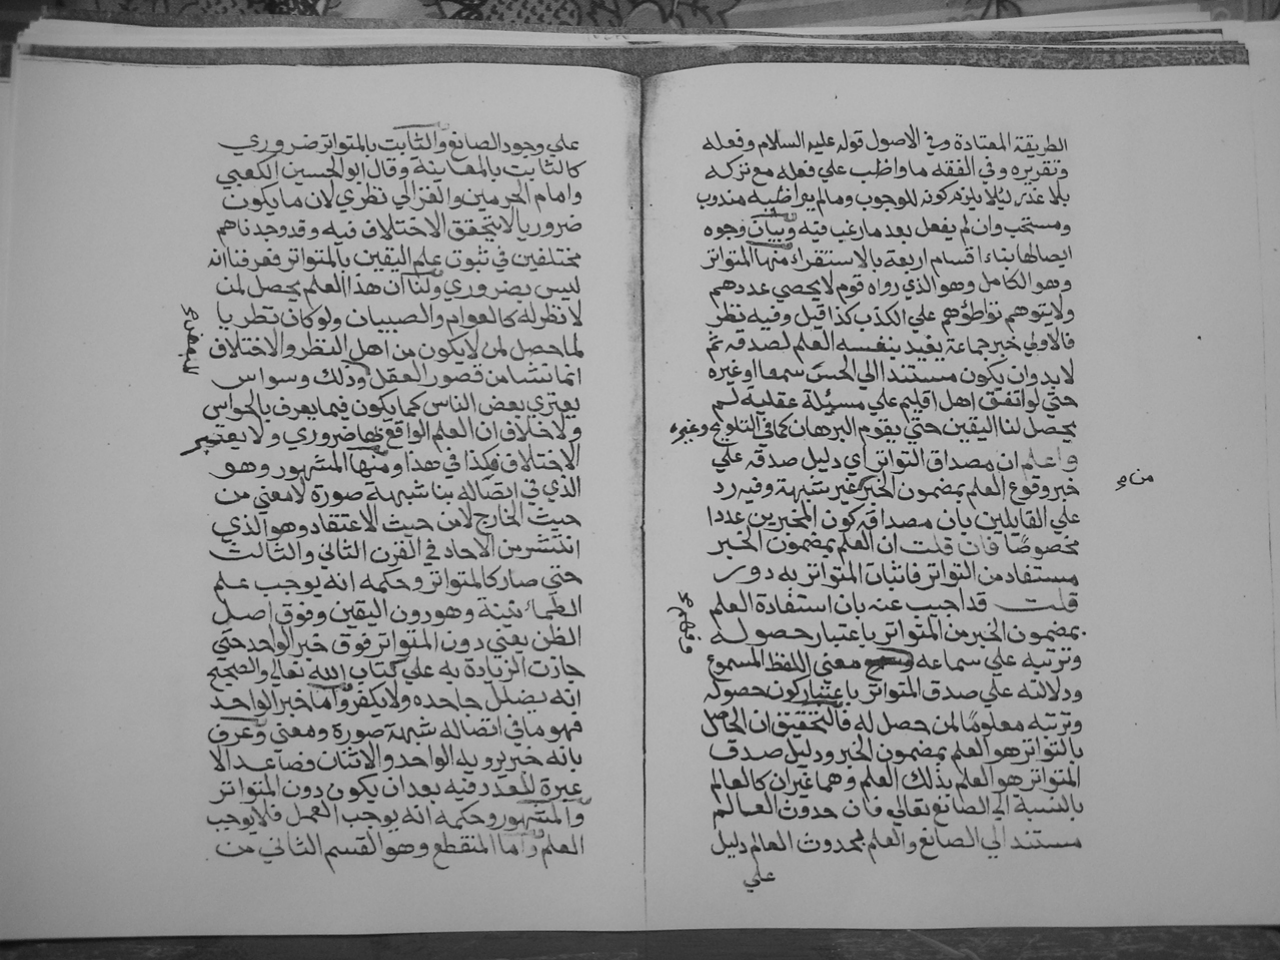 الطريقة المعتادة وفي الاصول قوله عليه السلام وفعله
وتقريره وفي الفقه ما واظب علي فعله مع تركه
بلا عذر ليلا يلزم كونه للوجوب وما لم يواظبه مندوب
ومستحب وان لم يفعل بعد ما رغب فيه وبيان وجوه
ايصالها بناء اقسام اربعة بالاستقراء منها المتواتر
وهو الكامل وهو الذي رواه قوم لا يحصي عددهم
ولا يتوهم تواطؤهم علي الكذب كذا قيل وفيه نظر
فالاولي خبر جماعة يفيد بنفسه العلم لصدقه ثم
لا بد وان يكون مستندا الي الحس سمعا او غيره
حتي لو اتفق اهل اقليم علي مسيلة عقلية لم
يحصل لنا اليقين حتي يقوم البرهان كما في التلويح وغيره
واعلم ان مصداق التواتر اي دليل صدقه علي
خبر وقوع العلم بمضمون الخبر غير شبهة وفيه رد
من
علي القايلين بان مصداقه كون المخبرين عددا
مخصوصا فان قلت ان العلم بمضمون الخبر
مستفاد من التواتر فاثبات المتواتر به دور
قلت قد اجيب عنه بان استفادة العلم
بمضمون الخبر من المتواتر باعتبار حصوله
وترتبه علي سماعه معني اللفظ المسموع
ودلالته علي صدق المتواتر باعتبار كون حصوله
وترتبه معلوما لمن حصل له فالتحقيق ان الحاصل
بالتواتر هو العلم بمضمون الخبر ودليل صدق
المتواتر هو العلم بذلك العلم وهما غيران كالعالم
بالنسبة الي الصانع تعالي فان حدوث العالم
مستند الي الصانع والعلم بحدوث العالم دليل
علي
علي وجود الصانع والثابت بالمتواتر ضروري
كالثابت بالمعاينة وقال ابو الحسين الكعبي
وامام الحرمين والغزالي نظري لان ما يكون
ضروريا لا يتحقق الاختلاف فيه وقد وجدناهم
مختلفين في ثبوت علم اليقين بالمتواتر فعرفنا انه
ليس بضروري ولنا ان هذا العلم يحصل لمن
لا نظر له كالعوام والصبيان ولو كان نظريا
لما حصل لمن لا يكون من اهل النظر والاختلاف
انما نشا من قصور العقل وذلك وسواس
يعتري بعض الناس كما يكون فيما يعرف بالحواس
ولا خلاف ان العلم الواقع بها ضروري ولا يعتبر
الاختلاف فكذا في هذا ومنها المشهور وهو
الذي في اتصاله بنا شبهة صورة لا معني من
حيث الخارج لا من حيث الاعتقاد وهو الذي
انتشر من الاحاد في القرن الثاني والثالث
حتي صار كالمتواتر وحكمه انه يوجب علم
الطمانينة وهو دون اليقين وفوق اصل
الظن يعني دون المتواتر فوق خبر الواحد حتي
جازت الزيادة به علي كتاب الله تعالي والصحيح
انه يضلل جاحده ولا يكفر واما خبر الواحد
فهو ما في اتصاله شبهة صورة ومعني وعرف
بانه خبر يرويه الواحد والاثنان فصاعدا لا
عبرة للعدد فيه بعد ان يكون دون المتواتر
والمشهور وحكمه انه يوجب العمل فلا يوجب
العلم واما المنقطع وهو القسم الثاني من